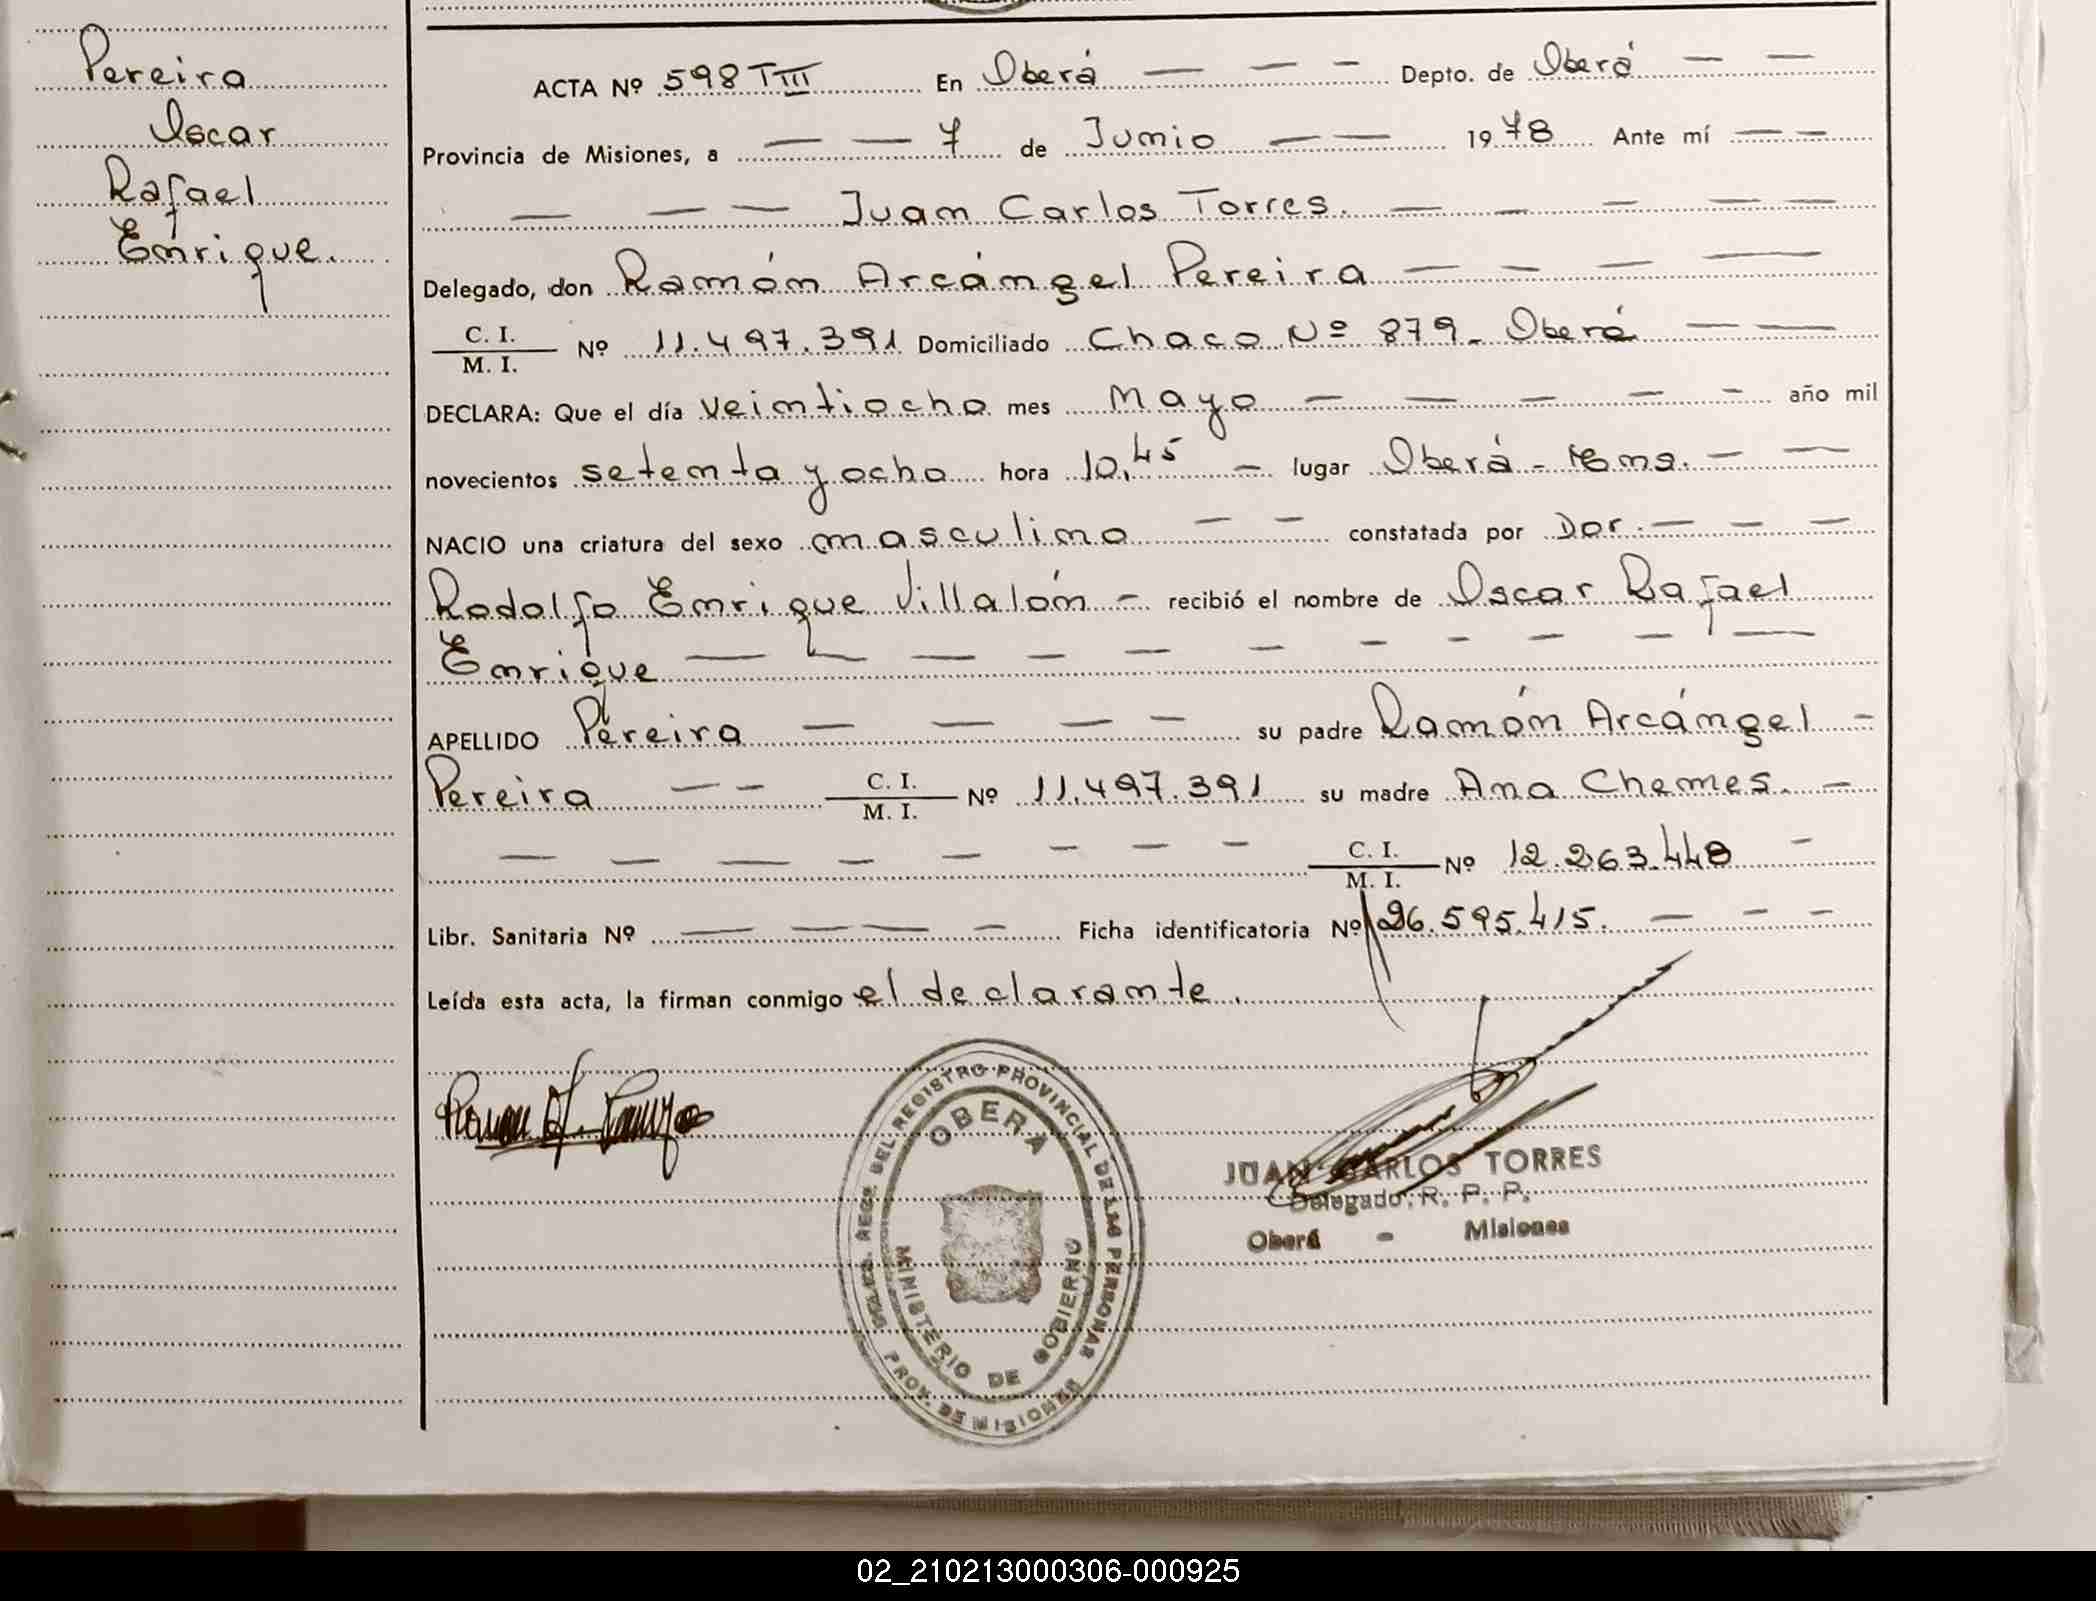 Pereira
Oscar
Rafael
Enrique.
ACTA Nº 598 TIII En Oberá — — — Depto. de Oberá — —
Provincia de Misiones, a — — 7 de Junio — — 1978 Ante mí — —
— — — Juan Carlos Torres. — — — — —
Delegado, don Ramón Arcángel Pereira — — — —
C. I.
M. I. Nº 11.497.391 Domiciliado Chaco Nº 879. Oberá — —
DECLARA: Que el día veintiocho mes Mayo — — — — — año mil
novecientos setenta y ocho hora 10,45 — lugar Oberá - Mns. — —
NACIO una criatura del sexo masculino — — constatada por Dor. — — —
Rodolfo Enrique Villalón — recibió el nombre de Oscar Rafael
Enrique — — — — — — — — — — —
APELLIDO Pereira — — — — su padre Ramón Arcángel —
Pereira — — C. I.
M. I. Nº 11.497.391 su madre Ana Chemes. —
— — — — — — — — C. I.
M. I. Nº 12.263.448 —
Libr. Sanitaria Nº — — — — Ficha identificatoria Nº 26.595.415. — — —
Leída esta acta, la firman conmigo el declarante.
REGISTRO PROVINCIAL DE LAS PERSONAS
OBERÁ
MINISTERIO DE GOBIERNO
PROV. DE MISIONES
JUAN CARLOS TORRES
Delegado R. P. P.
Oberá - Misiones
02_210213000306-000925